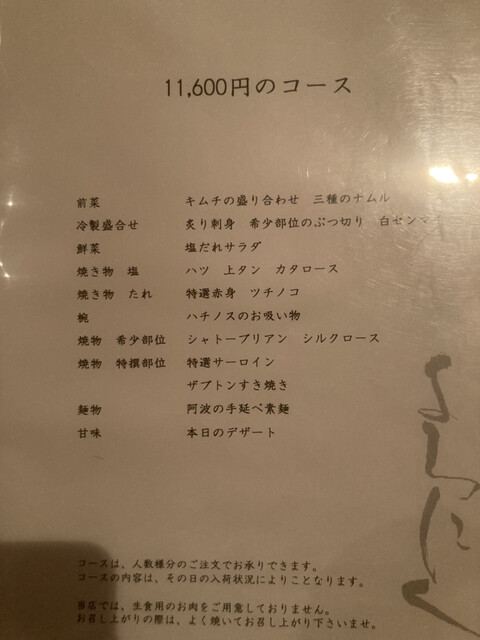 11,600円のコース
前菜 キムチの盛り合わせ 三種のナムル
冷製盛合せ 炙り刺身 希少部位のぶつ切り 白センマイ
鮮菜 塩だれサラダ
焼き物 塩 ハツ 上タン カタロース
焼き物 たれ 特選赤身 ツチノコ
椀 ハチノスのお吸い物
焼物 希少部位 シャトーブリアン シルクロース
焼物 特撰部位 特選サーロイン
ザブトンすき焼き
麺物 阿波の手延べ素麺
甘味 本日のデザート
よろにく
コースは、人数様分のご注文でお承りできます。
コースの内容は、その日の入荷状況によりことなります。
当店では、生食用のお肉をご用意しておりません。
お召し上がりの際は、よく焼いてお召し上がり下さいませ。